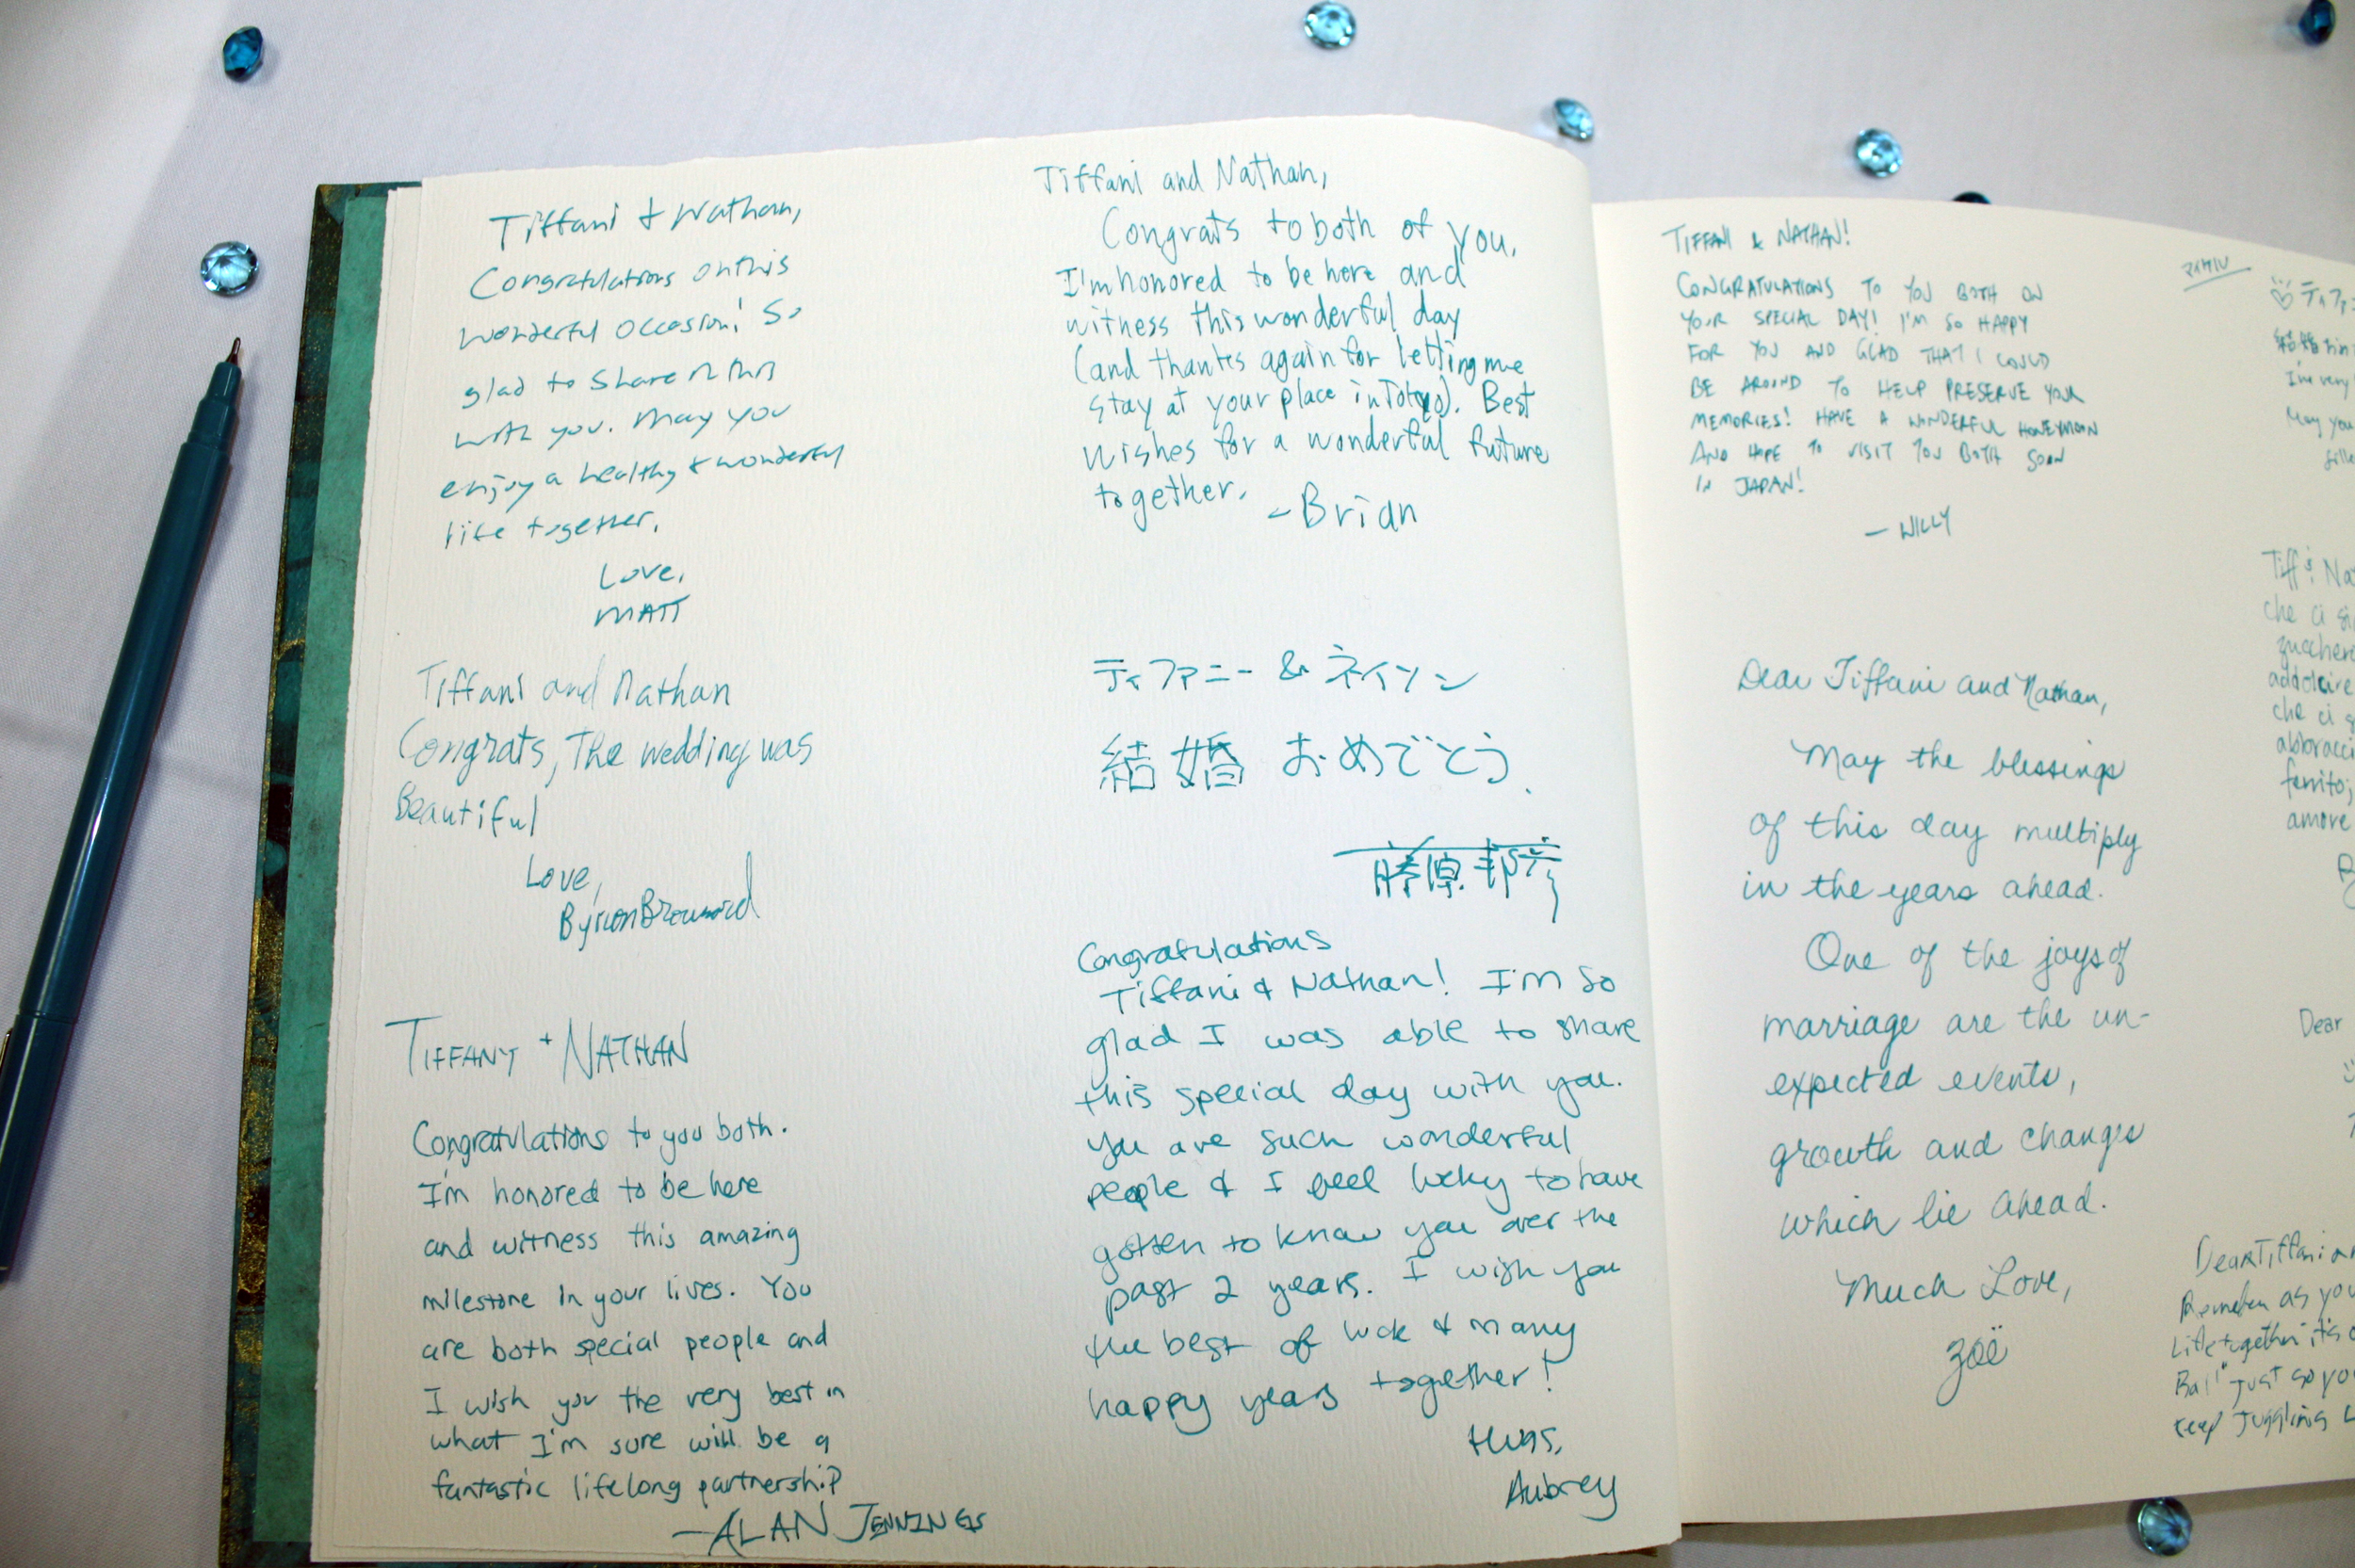 Tiffani & Nathan,
Congratulations on this
wonderful occasion! So
glad to share in this
with you. May you
enjoy a healthy & wonderful
life together.
Love,
MATT
Tiffani and Nathan
Congrats, The wedding was
Beautiful
Love,
Byron
TIFFANY + NATHAN
Congratulations to you both.
I'm honored to be here
and witness this amazing
milestone in your lives. You
are both special people and
I wish you the very best in
what I'm sure will be a
fantastic lifelong partnership
-ALAN JENNINGS
Tiffani and Nathan,
Congrats to both of you.
I'm honored to be here and
witness this wonderful day
(and thanks again for letting me
stay at your place in Tokyo). Best
wishes for a wonderful future
together.
-Brian
ティファニー & ネイソン
結婚 おめでとう.
藤原 邦彦
Congratulations
Tiffani & Nathan! I'm so
glad I was able to share
this special day with you.
You are such wonderful
people & I feel lucky to have
gotten to know you over the
past 2 years. I wish you
the best of luck & many
happy years together!
Hugs,
Aubrey
TIFFANI & NATHAN!
CONGRATULATIONS TO YOU BOTH ON
YOUR SPECIAL DAY! I'M SO HAPPY
FOR YOU AND GLAD THAT I COULD
BE AROUND TO HELP PRESERVE YOUR
MEMORIES! HAVE A WONDERFUL HONEYMOON
AND HOPE TO VISIT YOU BOTH SOON
IN JAPAN!
- WILLY
Dear Tiffani and Nathan,
May the blessings
of this day multiply
in the years ahead.
One of the joys of
marriage are the un-
expected events,
growth and changes
which lie ahead.
Much Love,
Zoë
マイケル
ティファ
結婚
I'm very
May you
Tiff
che ci
addolcire
che ci
amore
Dear
Dear Tiffani
Remember as you
Life together it's
Ball" just so you
keep juggling